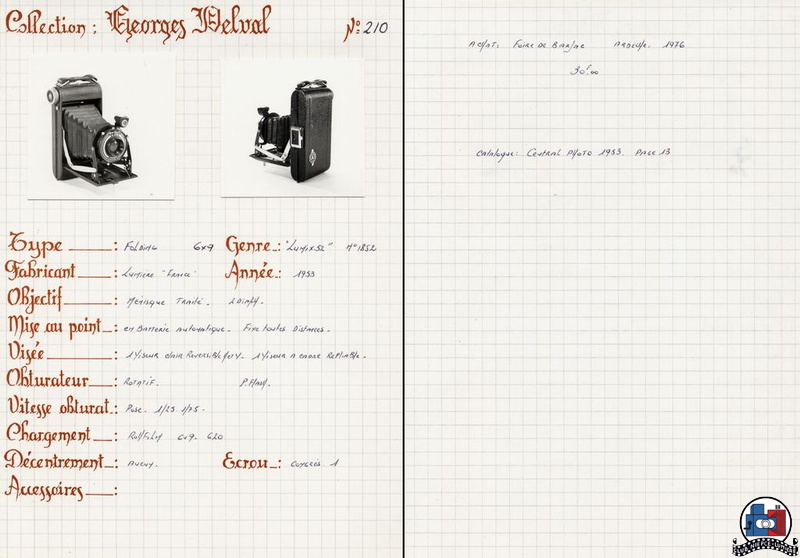 Collection : Georges Delval N° 210
Type : Folding 6x9 Genre : "Lumix 52" N° 1852
Fabricant : Lumiere "France" Année : 1953
Objectif : Ménisque Traité. 2 Diaph.
Mise au point : en Batterie automatique. Fixe toutes Distances.
Visée : 1 Viseur clair Reversible 1 Viseur a cadre Repliable.
Obturateur : Rotatif. P. Flash.
Vitesse obturat. : Pose. 1/25 1/75.
Chargement : Roll Film 6x9. 620
Décentrement : Aucun. Ecrou : Congrès 1
Accessoires :
Achat: Foire de Barjac Ardeche. 1976
30F.00
Catalogue: Central Photo 1953. Page 13